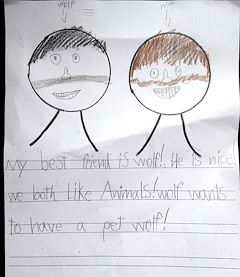 wolf me
my best friend is wolf! He is nice
we both Like Animals! wolf wants
to have a pet wolf!